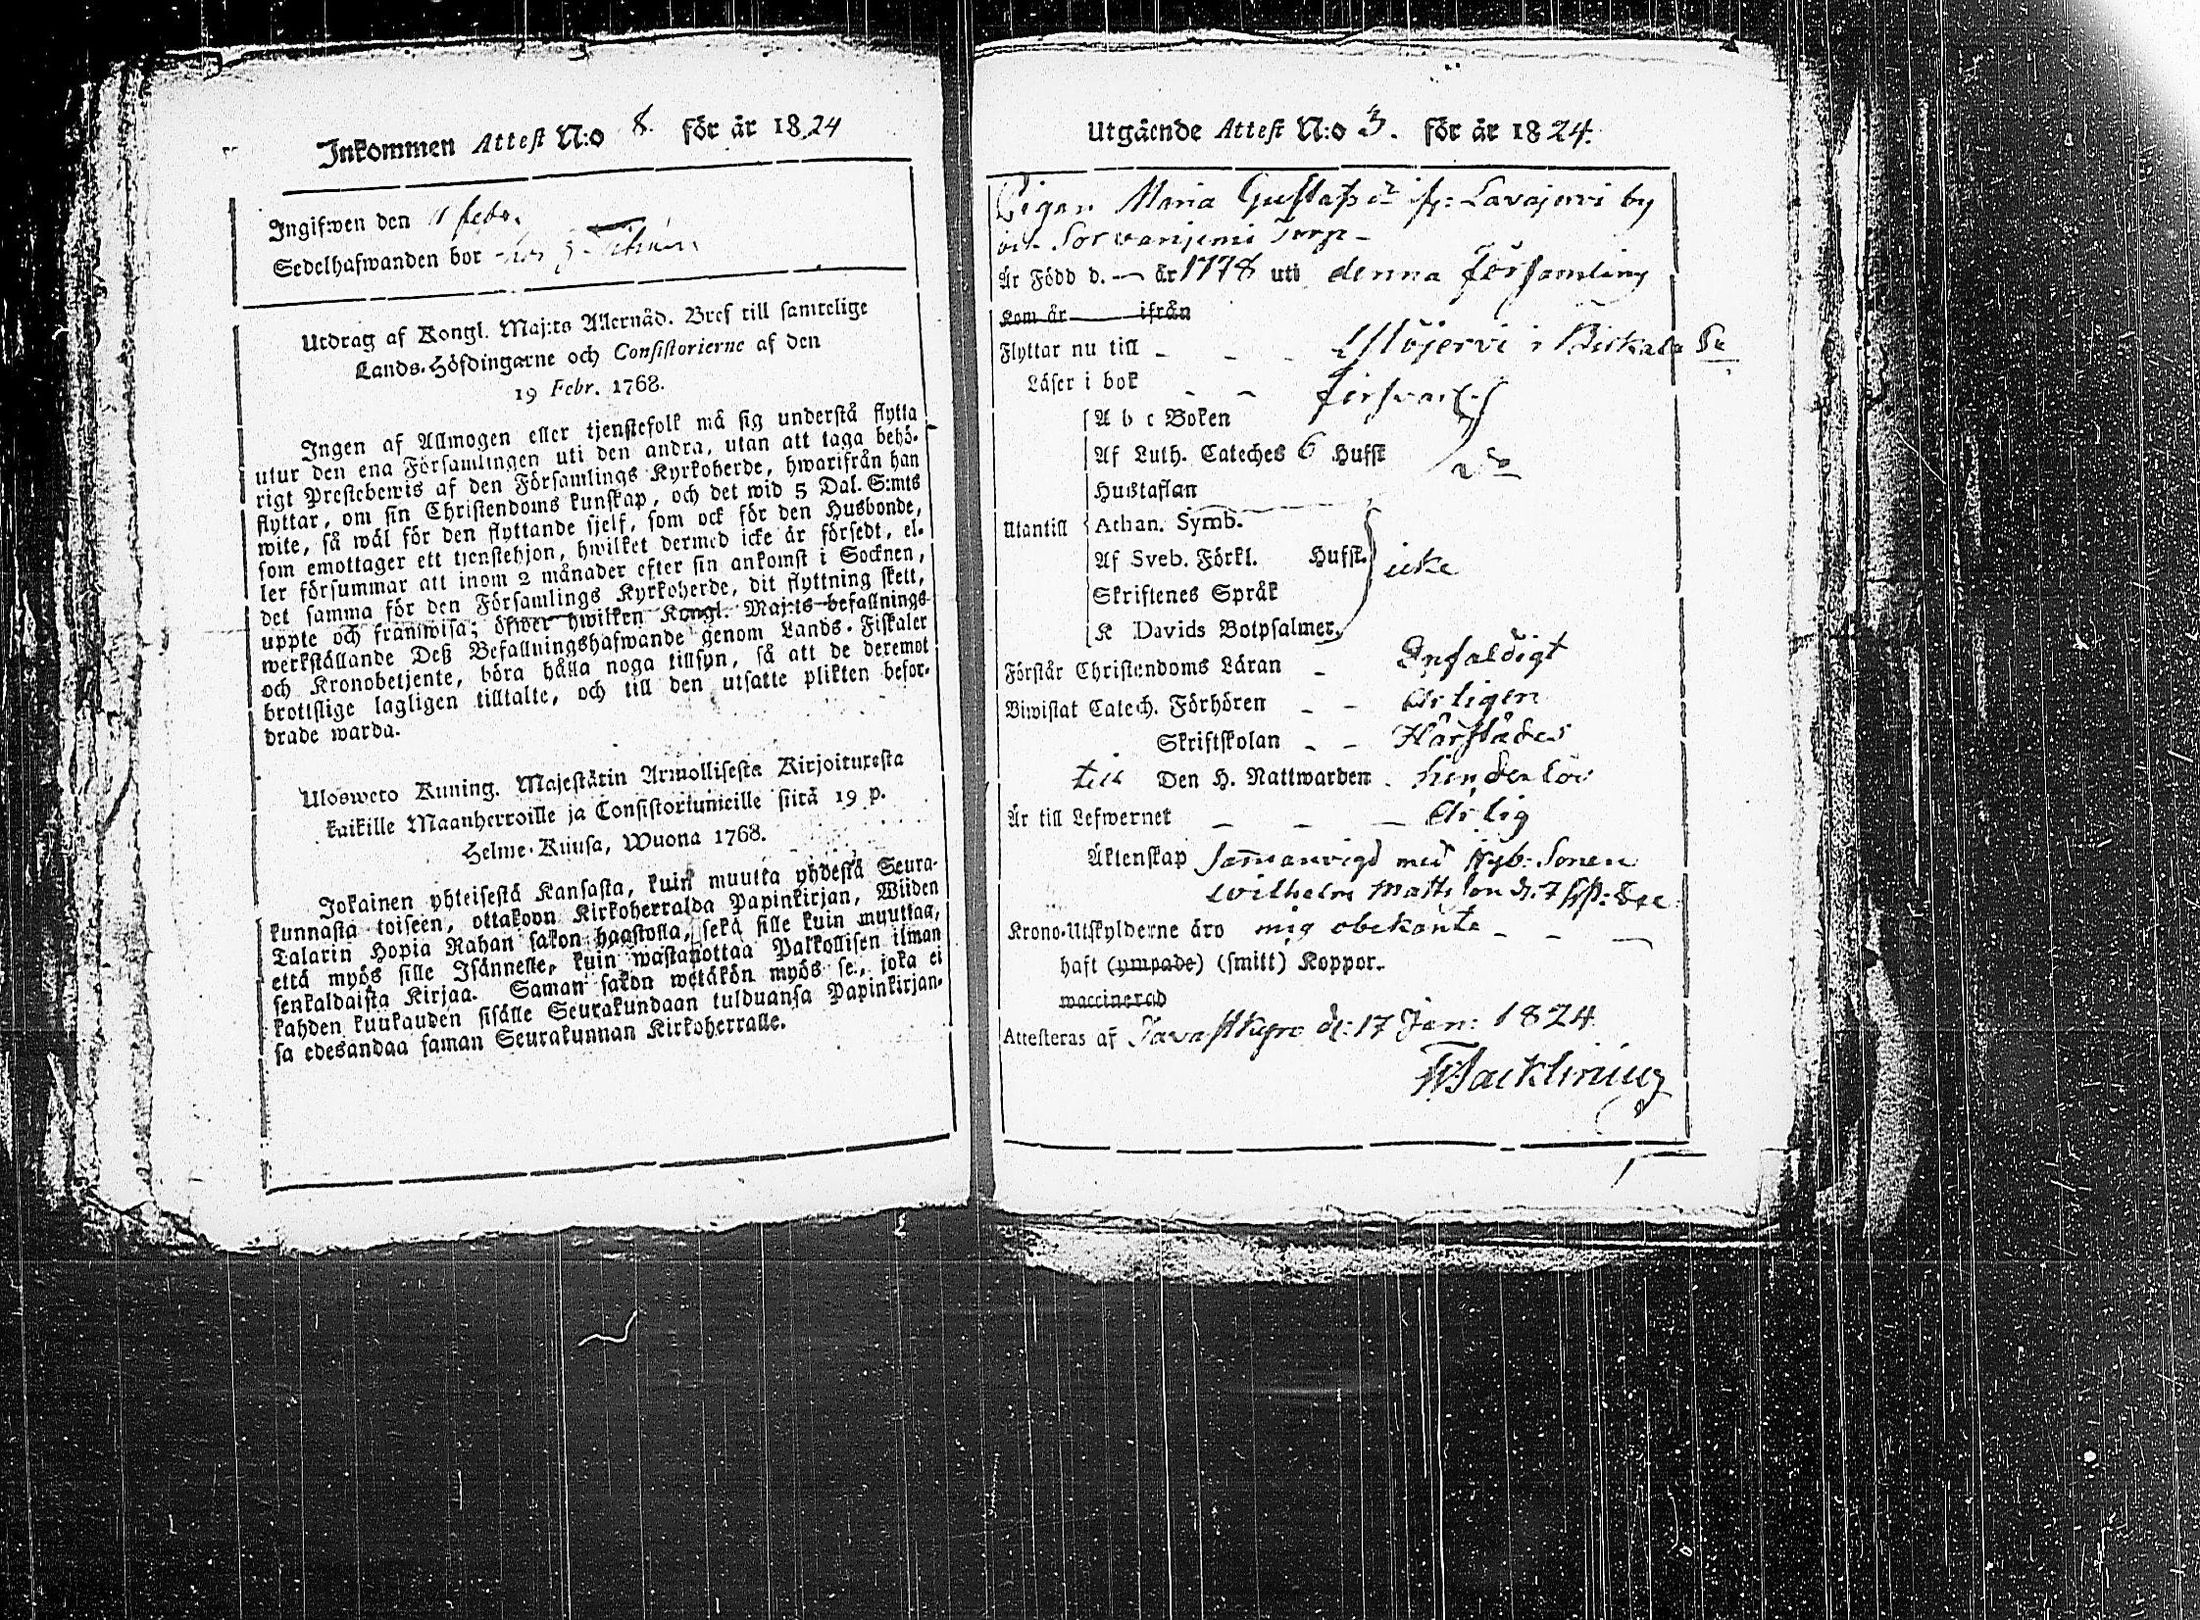 Inkommen Attest N:o 8. för år 1824
Ingifwen den 11 febr.
Sedelhafwanden bor hos
Utdrag af Kongl. Maj:ts Allernåd. Bref till samtelige
Lands-Höfdingarne och Consistorierne af den
19 Febr. 1768.
Ingen af Allmogen eller tjenstefolk må sig understå flytta
utur den ena Församlingen uti den andra, utan att taga behö-
rigt Prestebewis af den Församlings Kyrkoherde, hwarifrån han
flyttar, om sin Christendoms kunskap, och det wid 5 Dal. S:mts
wite, så wäl för den flyttande sjelf, som ock för den Husbonde,
som emottager ett tjenstehjon, hwilket dermed icke är försedt, el-
ler försummar att inom 2 månader efter sin ankomst i Socknen,
det samma för den Församlings Kyrkoherde, dit flyttning skett,
uppte och framwisa; öfwer hwilken Kongl. Maj:ts befallnings
werkställande Deß Befallningshafwande genom Lands-Fiskaler
och Kronobetjente, böra hålla noga tillsyn, så att de deremot
brottslige lagligen tilltalte, och till den utsatte plikten befor-
drade warda.
Ulosweto Kuning. Majestätin Armollisesta Kirjoituresta
kaikille Maanherroille ja Consistoriumeille siitä 19 p.
Helme-Kuusa, Wuona 1768.
Jokainen yhteisestä Kansasta, kuin muutta yhdestä Seura-
kunnasta toiseen, ottakoon Kirkoherralda Papinkirjan, Wiiden
Talarin Hopia Rahan sakon haastolla, sekä sille kuin muuttaa,
että myös sille Isännelle, kuin wastanottaa Palkollisen ilman
senkaldaista Kirjaa. Saman sakon wetäkön myös se, joka ei
kahden kuukauden sisälle Seurakundaan tulduansa Papinkirjan-
sa edesandaa saman Seurakunnan Kirkoherralle.
Utgående Attest N:o 3. för år 1824.
Pigan Maria Gustafsd:r fr: Lavajervi by
och Sorvanjemi Torp
Är Född d. — år 1778 uti denna församling
Kom år ifrån
Flyttar nu till - - - Ylöjervi i Birkala
Läser i bok - - försvarl:
A b c Boken
Af Luth. Cateches 6 Hufst
Hustaflan
Utantill Athan. Symb.
Af Sveb. Förkl. Hufst. icke
Skriftenes Språk
K Davids Botpsalmer.
Förstår Christendoms Läran - Enfaldigt
Biwistat Catech. Förhören - - Årligen
Skriftskolan - - Härstädes
till Den H. Nattwarden - hinderlös
Är till Lefwernet - - - Ärlig
Äktenskap sammanvigd med Nyb. Sonen
Wilhelm Matts son d. 7
Krono-Utskylderne äro mig obekante - - -
haft (ympade) (smitt) Koppor.
waccinerad
Attesteras af Tavastkyro d: 17 Jan: 1824